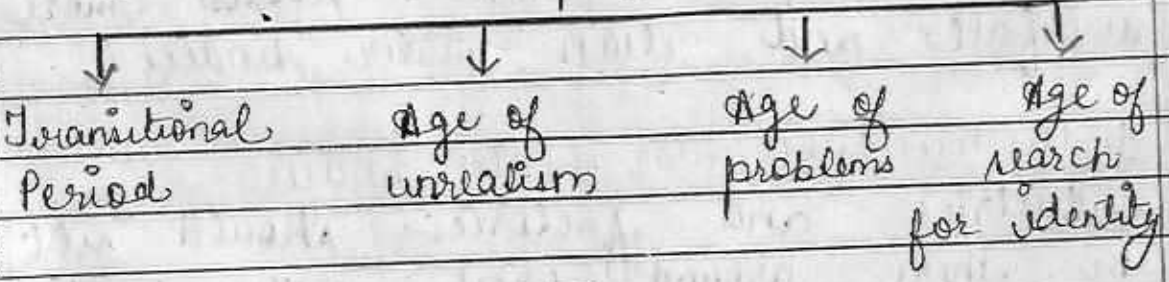 Transitional Period
Age of unrealism
Age of problems
Age of search for identity